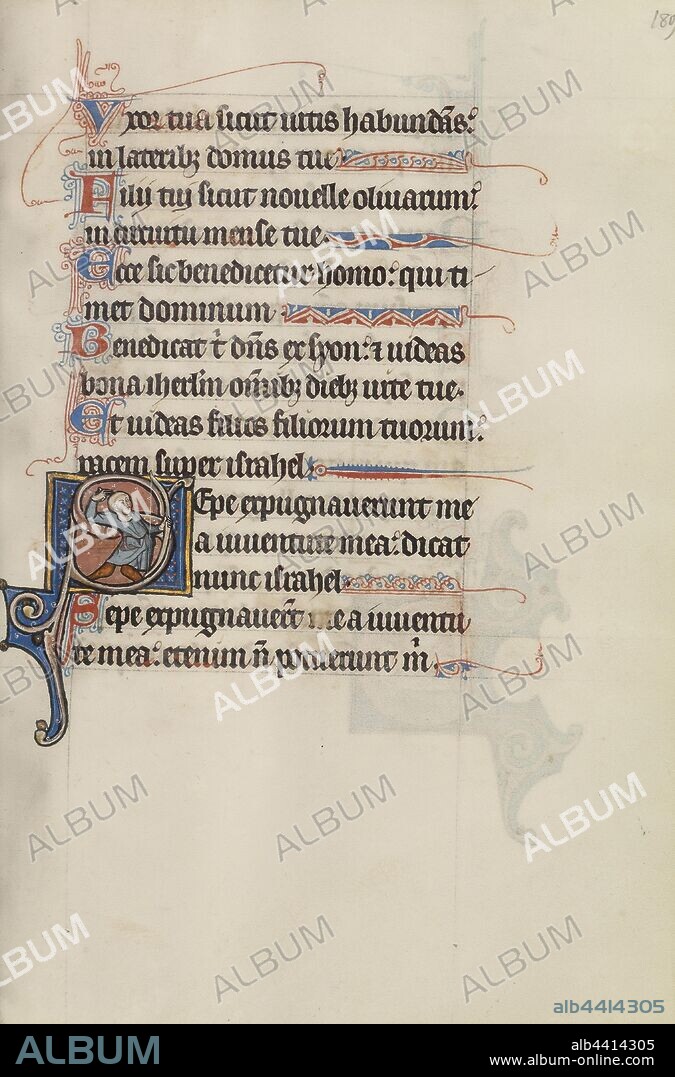 189
Uxor tua sicut uitis habundãs:
in laterib; domus tue
Filii tui sicut nouelle oliuarum:
in circuitu mense tue.
Ecce sic benedicetur homo: qui ti-
met dominum
Benedicat t' dñs ex syon: ⁊ uideas
bona iherl'm om̃ib; dieb; uite tue.
Et uideas filios filiorum tuorum:
pacem super israhel
Sepe expugnauerunt me
a iuuentute mea: dicat
nunc israhel
Sepe expugnauer̃t me a iuuentu
te mea: etenim ñ potuerunt m̃.
alb4414305
ALBUM
alb4414305
www.album-online.com